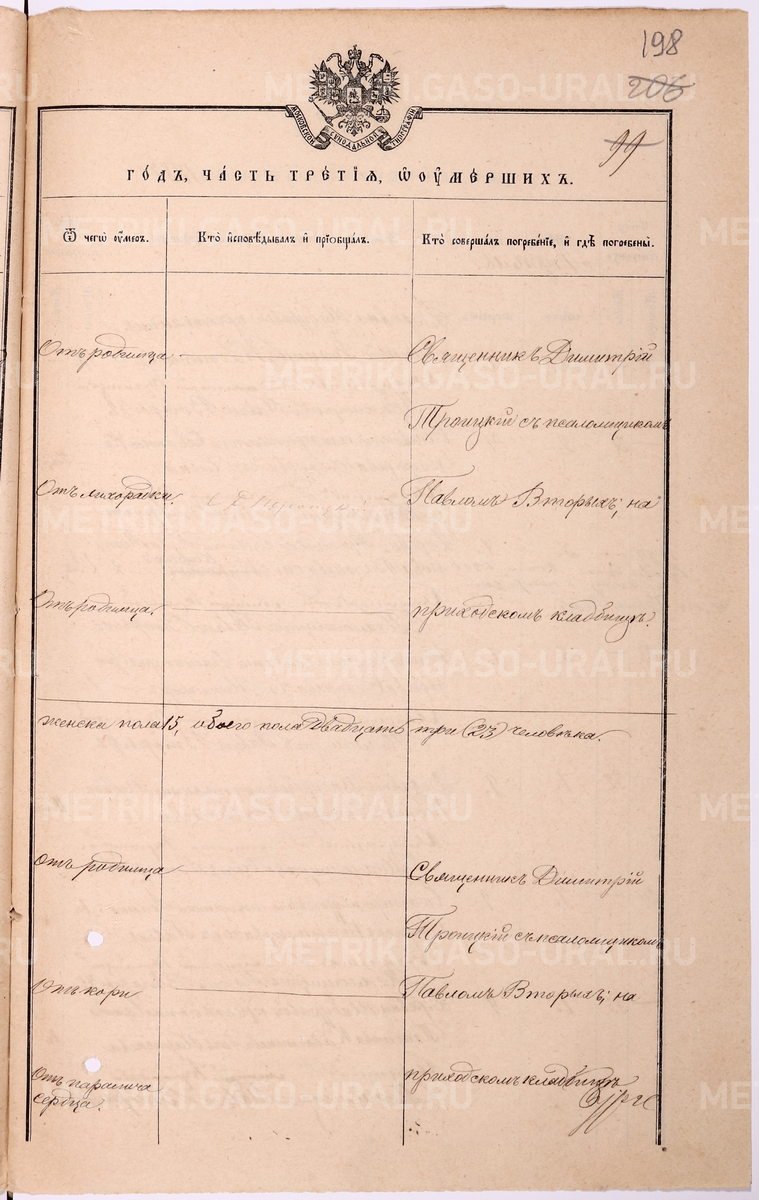 198
206
99
МОСКОВСКОЙ СѴНОДАЛЬНОЙ ТИПОГРАФІИ
ГОДЪ, ЧАСТЬ ТРЕТІЯ, Ѡ ОУМЕРШИХЪ.
Ѿ чегѡ оумеръ.
Кто исповѣдывалъ и пріобщалъ.
Кто совершалъ погребеніе, и гдѣ погребены.
Отъ родимца
Священникъ Димитрій
Троицкій съ псаломщикомъ
Отъ лихорадки.
Павломъ Вторыхъ; на
Отъ родимца.
приходскомъ кладбищѣ.
женска пола 15, обоего пола двадцать три (23) человѣка.
Отъ родимца
Священникъ Димитрій
Троицкій съ псаломщикомъ
Отъ кори
Павломъ Вторыхъ; на
Отъ паралича
сердца.
приходскомъ кладбищѣ
METRIKI.GASO-URAL.RU